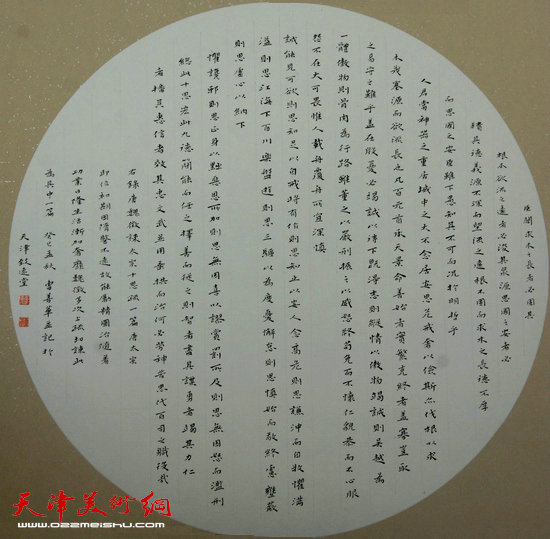 臣聞求木之長者必固其
根本欲流之遠者必浚其泉源思國之安者必
積其德義源不深而望流之遠根不固而求木之長德不厚
而思國之安臣雖下愚知其不可而況於明哲乎
人君當神器之重居域中之大不念居安思危戒奢以儉斯亦伐根以求
木茂塞源而欲流長也凡百元首承天景命善始者實繁克終者蓋寡豈取
之易守之難乎蓋在殷憂必竭誠以待下既得志則縱情以傲物竭誠則吳越為
一體傲物則骨肉為行路雖董之以嚴刑振之以威怒終苟免而不懷仁貌恭而不心服
怨不在大可畏惟人載舟覆舟所宜深慎
誠能見可欲則思知足以自戒將有作則思知止以安人念高危則思謙沖而自牧懼滿
溢則思江海下百川樂盤遊則思三驅以為度憂懈怠則思慎始而敬終慮壅蔽
則思虛心以納下
懼讒邪則思正身以黜惡恩所加則思無因喜以謬賞罰所及則思無因怒而濫刑
總此十思宏此九德簡能而任之擇善而從之則智者盡其謀勇者竭其力仁
者播其惠信者效其忠文武並用垂拱而治何必勞神苦思代百司之職役哉
右錄唐魏徵諫太宗十思疏一篇唐太宗
即位初期因隋鑒不遠故能勵精圖治隨著
功業日隆生活漸加奢靡魏徵多次上疏切諫此
為其中一篇 癸巳孟秋 喜華並記於
天津 遠堂
天津美術網
www.022meishu.com